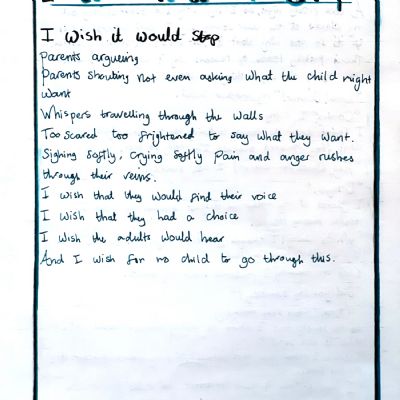 I wish it would stop
Parents argueing
Parents shouting not even asking what the child might
want
Whispers travelling through the walls
Too scared too frightened to say what they want.
Sighing softly, crying softly pain and anger rushes
through their veins.
I wish that they would find their voice
I wish that they had a choice
I wish the adults would hear
And I wish for no child to go through this.